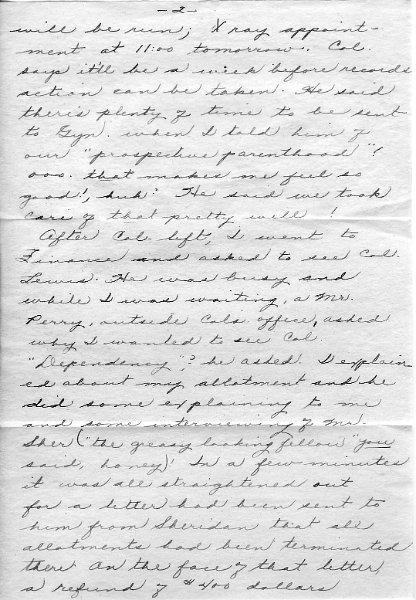 -2-
will be run; X ray appoint-
ment at 11:00 tomorrow. Col.
says it'll be a week before records
action can be taken. He said
there's plenty of time to be sent
to Gyn. when I told him of
our "prospective parenthood"!
ooo. that makes me feel so
good!, huh? He said we took
care of that pretty well!
After Col. left, I went to
Finance and asked to see Col.
Lewis. He was busy and
while I was waiting, a Mr.
Perry, outside Col's office, asked
why I wanted to see Col.
"Dependency"? he asked. I explain-
ed about my allotment and he
did some explaining to me
and some interviewing of Mr.
Sher ("the greasy looking fellow" you
said, honey)! In a few minutes
it was all straightened out
for a letter had been sent to
him from Sheridan that all
allotments had been terminated
there. On the face of that letter,
a refund of $400 dollars